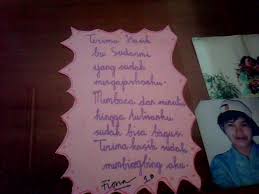 Terima kasih
bu Sudarmi
yang sudah
mengajarkanku.
Membaca dan menulis
hingga tulisanku
sudah bisa bagus.
Terima kasih sudah
membimbing aku.
Fionn